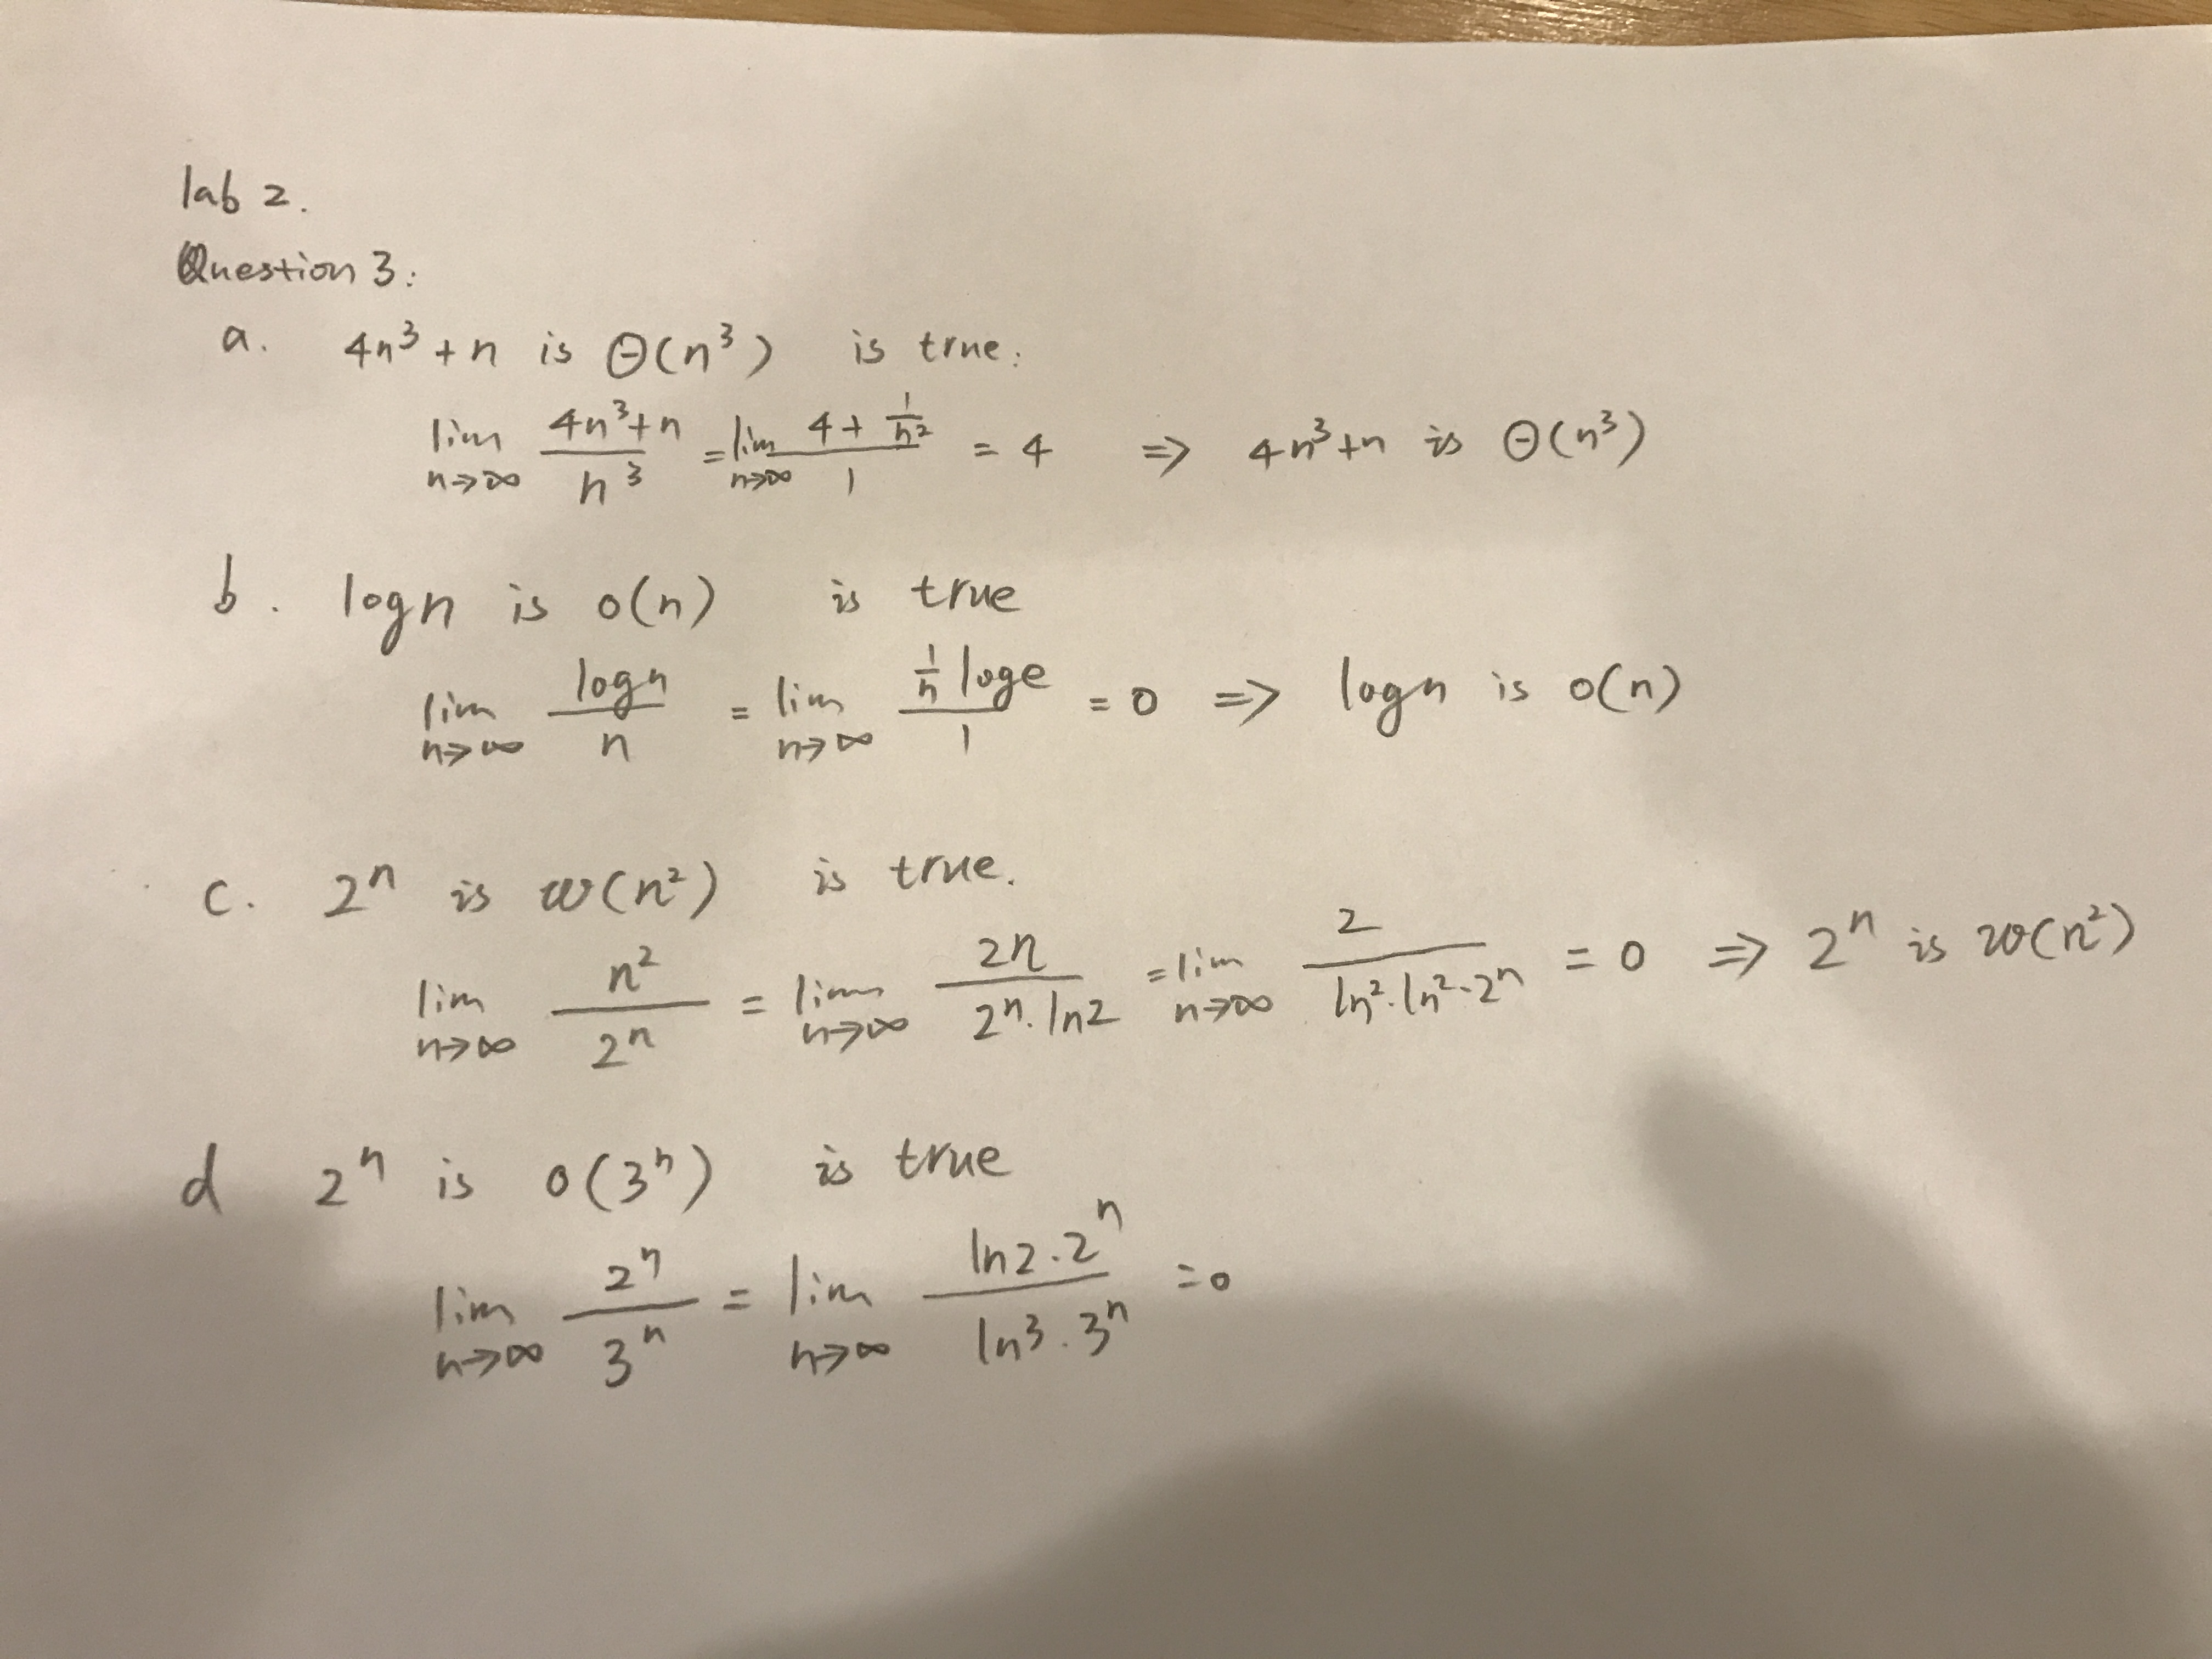 lab 2.
Question 3:
a. 4n³+n is Θ(n³) is true:
lim n→∞ (4n³+n)/n³ = lim n→∞ (4+1/n²)/1 = 4 ⇒ 4n³+n is Θ(n³)
b. logn is o(n) is true
lim n→∞ logn/n = lim n→∞ (1/n loge)/1 = 0 ⇒ logn is o(n)
c. 2ⁿ is ω(n²) is true.
lim n→∞ n²/2ⁿ = lim n→∞ 2n/(2ⁿ·ln2) = lim n→∞ 2/(ln2·ln2·2ⁿ) = 0 ⇒ 2ⁿ is ω(n²)
d 2ⁿ is o(3ⁿ) is true
lim n→∞ 2ⁿ/3ⁿ = lim n→∞ (ln2·2ⁿ)/(ln3·3ⁿ) = 0